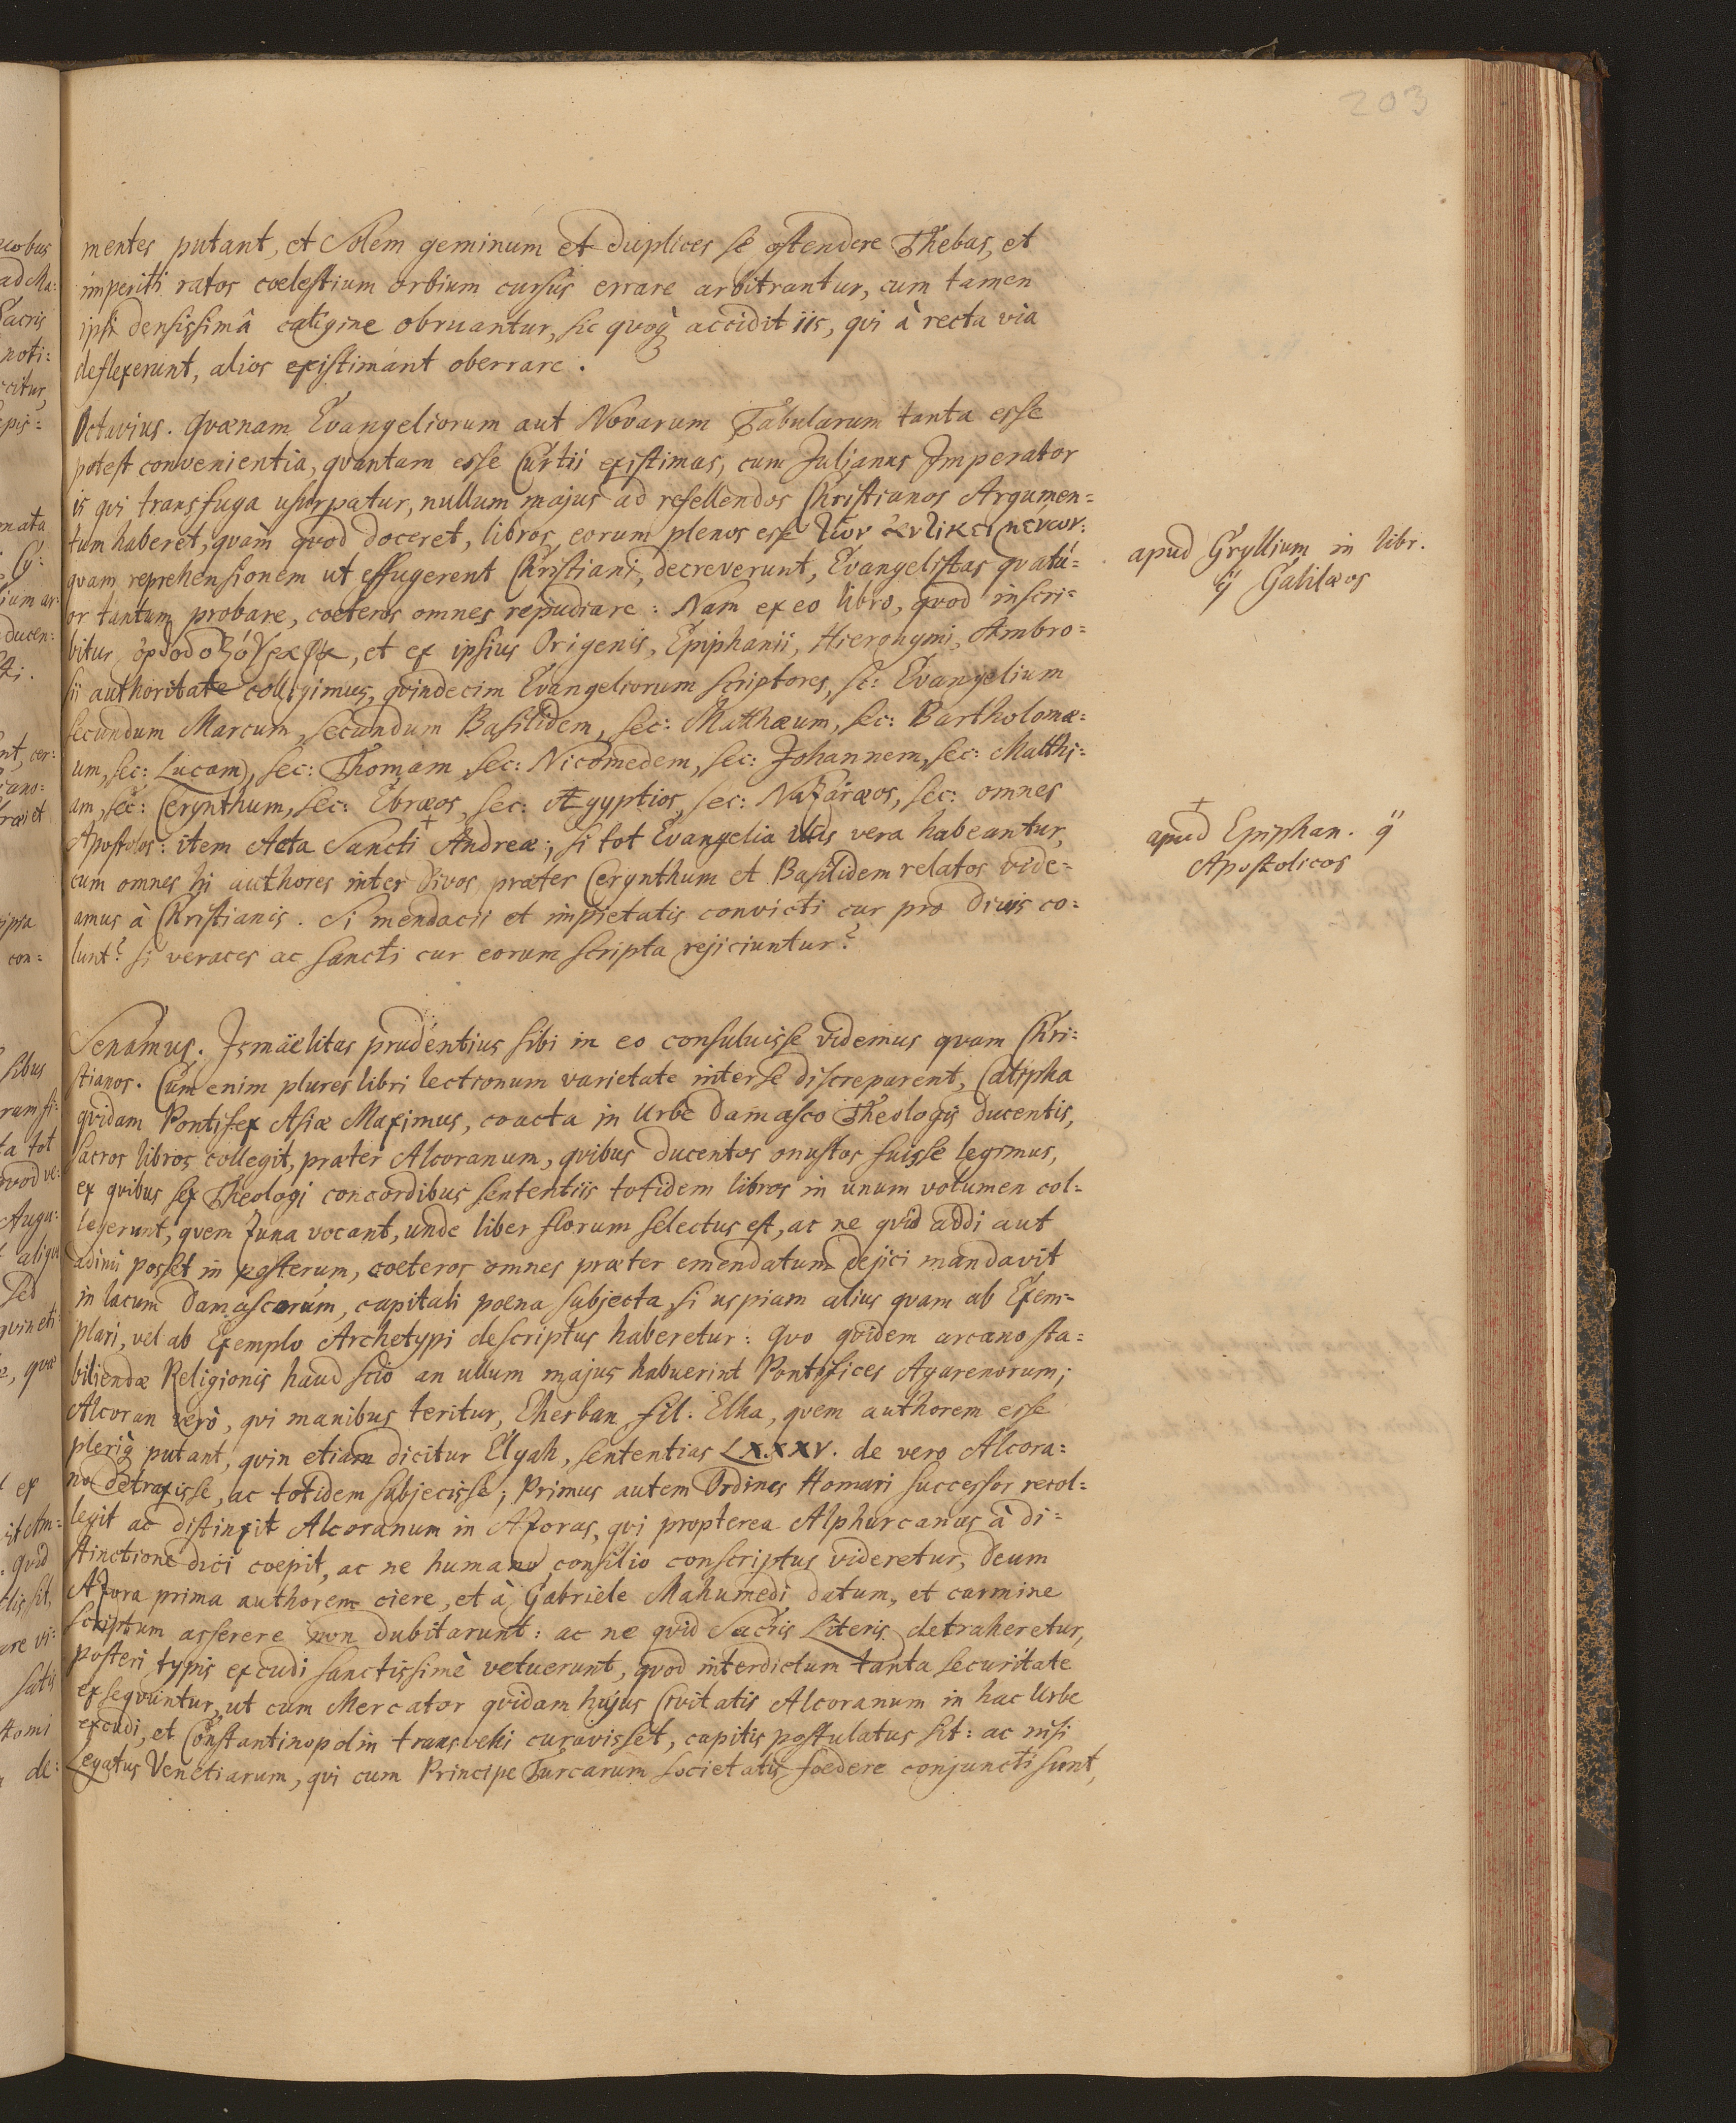 203
mentes putant, et Solem geminum et duplices se ostendere Thebas, et
imperiti ratos coelestium orbium cursus errare arbitrantur, cum tamen
ipsi densissimâ caligine obruantur, sic quoq; accidit iis, qvi à recta via
deflexerunt, alios existimant oberrare.
Octavius. Qvænam Evangeliorum aut Novarum Tabularum tanta esse
potest convenientia, qvantam esse Curtii existimas, cum Julianus Imperator
is qvi transfuga usurpatur, nullum majus ad refellendos Christianos Argumen=
tum haberet, qvàm qvod doceret, libros eorum plenos esse των
qvam reprehensionem ut effugerent Christiani, decreverunt, Evangelistas qvatu=
or tantum probare, coeteros omnes repudiare: Nam ex eo libro, qvod inscri=
bitur, et ex ipsius Origenis, Epiphanii, Hieronymi, Ambro=
sii authoritate colligimus, qvindecim Evangeliorum scriptores, sc: Evangelium
secundum Marcum, secundum Basilidem, sec: Matthæum, sec: Bartholomæ=
um, sec: Lucam, sec: Thomam, sec: Nicomedem, sec: Johannem, sec: Matthi=
am, sec: Cerynthum, sec: Ebræos, sec: Ægyptios, sec: Nazaræos, sec: omnes
Apostolos: item Acta Sancti + Andreæ; si tot Evangelia vera habeantur,
cum omnes hi authores inter Divos, præter Cerynthum et Basilidem relatos vide=
amus à Christianis. Si mendacii et impietatis convicti cur pro Divis co=
lunt? si veraces ac sancti cur eorum scripta rejiciuntur?
Senamus. Ismaëlitas prudentius sibi in eo consuluisse videmus qvam Chri=
stianos. Cum enim plures libri lectionum varietate inter se discreparent, Calipha
qvidam Pontifex Asiæ Maximus, coacta in Urbe Damasco Theologis ducentis,
sacros libros collegit, præter Alcoranum, qvibus ducentos onustos fuisse legimus,
ex qvibus sex Theologi concordibus sententiis totidem libros in unum volumen col=
legerunt, qvem Zuna vocant, unde liber florum selectus est, ac ne qvid addi aut
adimi posset in posterum, coeteros omnes præter emendatum dejici mandavit
in lacum Damascorum, capitali poena subjecta, si uspiam alius qvam ab Exem=
plari, vel ab Exemplo Archetypi descriptus haberetur: Qvo qvidem arcano sta=
biliendæ Religionis haud scio an ullum majus habuerint Pontifices Agarenorum;
Alcoran verò, qvi manibus teritur, Eherban, fil. Elha, qvem authorem esse
pleriq; putant, qvin etiam dicitur Elgah, sententias LXXXV. de vero Alcora=
no detraxisse, ac totidem subjecisse; Primus autem Ordines Homari successor recol=
legit ac distinxit Alcoranum in Azoras, qvi propterea Alphurcanus à di=
stinctione dici coepit, ac ne humano consilio conscriptus videretur, Deum
Azora prima authorem ciere, et à Gabriele Mahumedi datum, et carmine
scriptum asserere non dubitarunt: ac ne qvid Sacris Literis detraheretur,
posteri typis excudi sanctissimè vetuerunt, qvod interdictum tanta securitate
exseqvuntur, ut cum Mercator qvidam hujus Civitatis Alcoranum in hac Urbe
excudi, et Constantinopolin transvehi curavisset, capitis postulatus sit: ac nisi
Legatus Venetiarum, qvi cum Principe Turcarum societatis foedere conjuncti sunt,
apud Gryllium in libr.
Galilæos
+
apud Epiphan.
Apostolicos